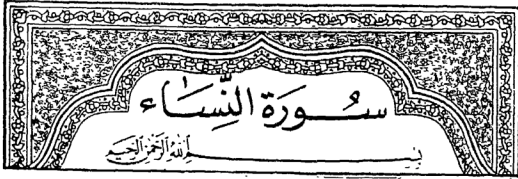 سُورَةُ النِّسَاء
بِسْمِ اللَّهِ الرَّحْمَٰنِ الرَّحِيمِ